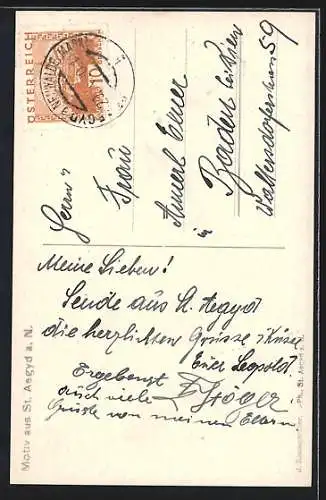 ÖSTERREICH
10
ST. AEGYD A. NEUWALDE
Herrn u
Frau
Amerl Exner
in Baden bei Wien
Waltersdorferstrasse 59
Meine Lieben!
Sende aus St. Aegyd
die herzlichten Grüsse u Küsse
Euer Leopold.
Ergebenst
auch viele
Grüsse von meinen Eltern
Motiv aus St. Aegyd a. N.